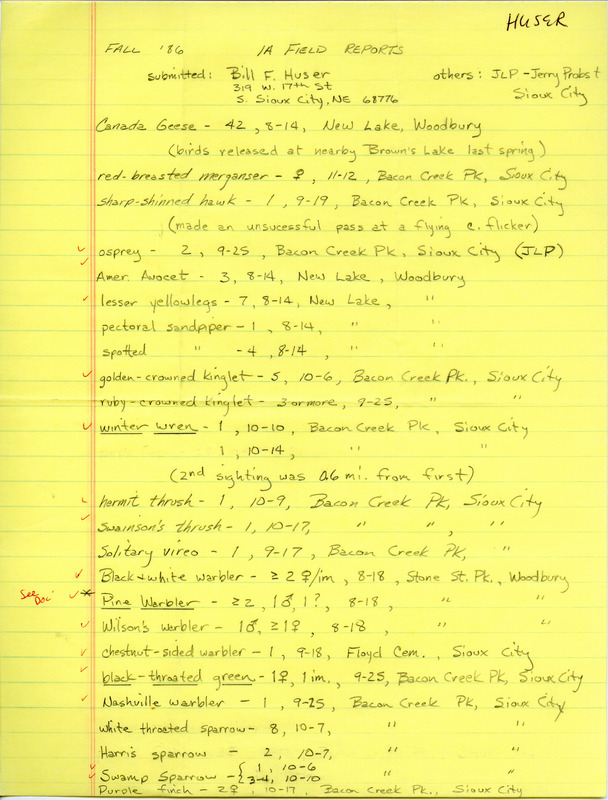 HUSER
FALL '86 IA FIELD REPORTS
submitted: Bill F. Huser others: JLP - Jerry Probst
319 W. 17th St Sioux City
S. Sioux City, NE 68776
Canada Geese - 42, 8-14, New Lake, Woodbury
(birds released at nearby Brown's Lake last spring)
red-breasted merganser - ♀, 11-12, Bacon Creek Pk, Sioux City
sharp-shinned hawk - 1, 9-19, Bacon Creek Pk, Sioux City
(made an unsucessful pass at a flying c. flicker)
✓ osprey - 2, 9-25, Bacon Creek Pk, Sioux City (JLP)
✓ Amer. Avocet - 3, 8-14, New Lake, Woodbury
✓ lesser yellowlegs - 7, 8-14, New Lake, "
pectoral sandpiper - 1, 8-14, " "
spotted " - 4, 8-14, " "
✓ golden-crowned kinglet - 5, 10-6, Bacon Creek Pk., Sioux City
ruby-crowned kinglet - 3 or more, 9-25, " "
✓ winter wren - 1, 10-10, Bacon Creek Pk, Sioux City
1, 10-14, " "
(2nd sighting was 0.6 mi. from first)
✓ hermit thrush - 1, 10-9, Bacon Creek Pk, Sioux City
✓ Swainson's thrush - 1, 10-17, " ", "
Solitary vireo - 1, 9-17, Bacon Creek Pk, "
✓ Black & white warbler - ≥ 2 ♀/im, 8-18, Stone St. Pk., Woodbury
See Doc ✓ * Pine Warbler - ≥2, 1♂, 1?, 8-18, " "
✓ Wilson's warbler - 1♂, ≥1♀, 8-18, " "
✓ chestnut-sided warbler - 1, 9-18, Floyd Cem., Sioux City
✓ black-throated green - 1♀, 1 im., 9-25, Bacon Creek Pk, Sioux City
✓ Nashville warbler - 1, 9-25, Bacon Creek Pk, Sioux City
white throated sparrow - 8, 10-7, " "
Harris sparrow - 2, 10-7, " "
✓ Swamp Sparrow - { 1, 10-6
✓ 3-4, 10-10 " "
Purple finch - 2♀, 10-17, Bacon Creek Pk., Sioux City